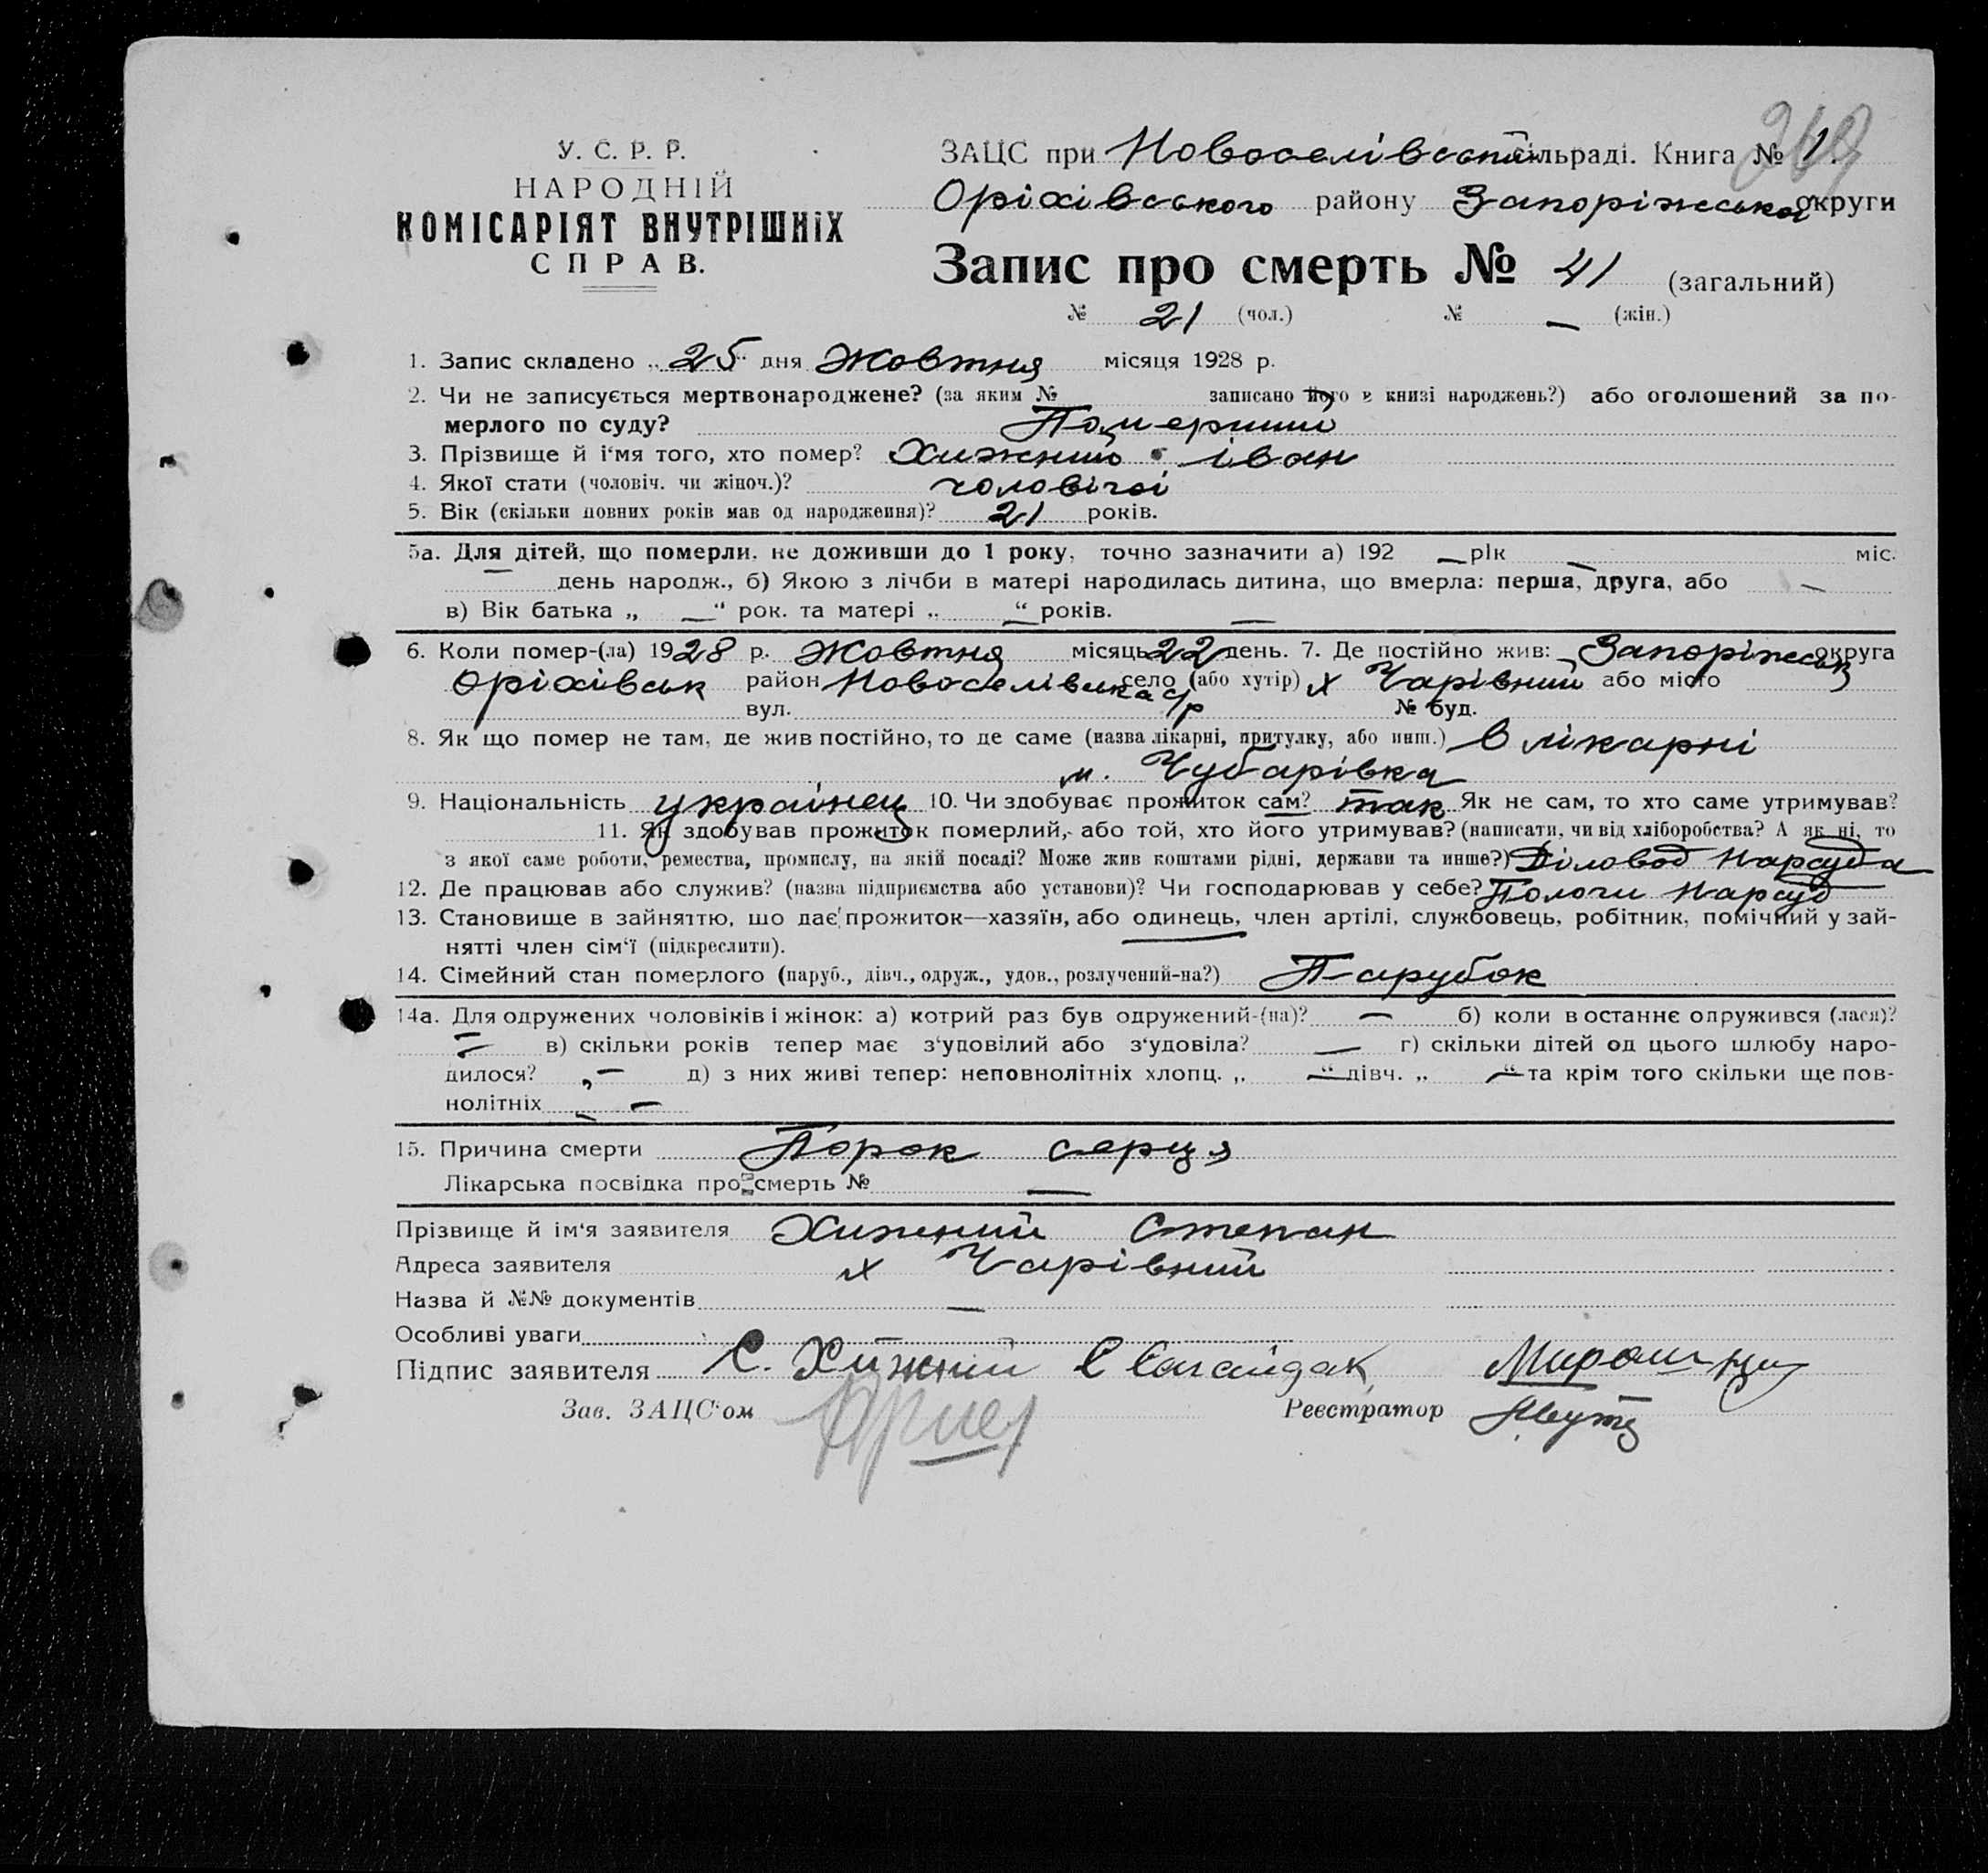 У. С. Р. Р.
НАРОДНІЙ
КОМІСАРІЯТ ВНУТРІШНІХ
СПРАВ.
ЗАЦС при Новоселівській сільраді. Книга № 1.
Оріхівського району Запоріжської округи
Запис про смерть № 41 (загальний)
№ 21 (чол.) № — (жін.)
1. Запис складено „25" дня Жовтня місяця 1928 р.
2. Чи не записується мертвонароджене? (за яким № записано його в книзі народжень?) або оголошений за по-
мерлого по суду? Померший
3. Прізвище й і'мя того, хто помер? Хижний Іван
4. Якої стати (чоловіч. чи жіноч.)? чоловічої
5. Вік (скільки повних років мав од народження)? 21 років.
5а. Для дітей, що померли, не доживши до 1 року, точно зазначити а) 192 — рік — міс.
— день народж., б) Якою з лічби в матері народилась дитина, що вмерла: перша, друга, або —
в) Вік батька „ — " рок. та матері „ — " років. —
6. Коли помер-(ла) 1928 р. Жовтня місяць 22 день. 7. Де постійно жив: Запоріжськ округа
Оріхівськ район Новоселівська с/р село (або хутір) х Чарівний або місто
вул. № буд.
8. Як що помер не там, де жив постійно, то де саме (назва лікарні, притулку, або инш.) в лікарні
м. Чубарівка
9. Національність українец 10. Чи здобуває прожиток сам? так Як не сам, то хто саме утримував?
11. Як здобував прожиток померлий, або той, хто його утримував? (написати, чи від хліборобства? А як ні, то
з якої саме роботи, ремества, промислу, на якій посаді? Може жив коштами рідні, держави та инше?) Діловод Нарсуда
12. Де працював або служив? (назва підприємства або установи)? Чи господарював у себе? Пологи Нарсуд
13. Становище в зайняттю, що дає прожиток—хазяїн, або одинець, член артілі, службовець, робітник, помічний у зай-
нятті член сім'ї (підкреслити).
14. Сімейний стан померлого (паруб., дівч., одруж., удов., розлучений-на?) Парубок
14а. Для одружених чоловіків і жінок: а) котрий раз був одружений-(на)? — б) коли в останнє одружився (лася)?
— в) скільки років тепер має з'удовілий або з'удовіла? — г) скільки дітей од цього шлюбу наро-
дилося? „ — д) з них живі тепер: неповнолітніх хлопц. „ — " дівч. „ — " та крім того скільки ще пов-
нолітніх —
15. Причина смерти Порок серця
Лікарська посвідка про смерть № —
Прізвище й ім'я заявителя Хижний Степан
Адреса заявителя х Чарівний
Назва й №№ документів —
Особливі уваги
Підпис заявителя С. Хижний
Зав. ЗАЦС'ом Реєстратор